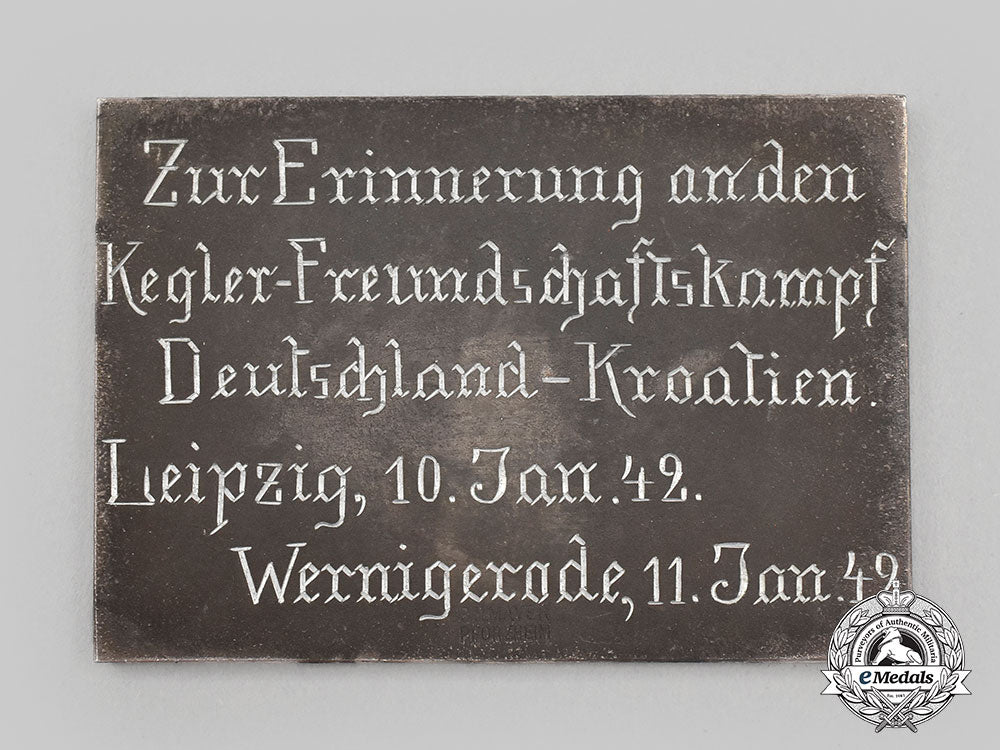 Zur Erinnerung an den
Kegler-Freundschaftskampf
Deutschland-Kroatien.
Leipzig, 10. Jan. 42.
Wernigerode, 11. Jan. 42
PFORZHEIM
Purveyors of Authentic Militaria
eMedals